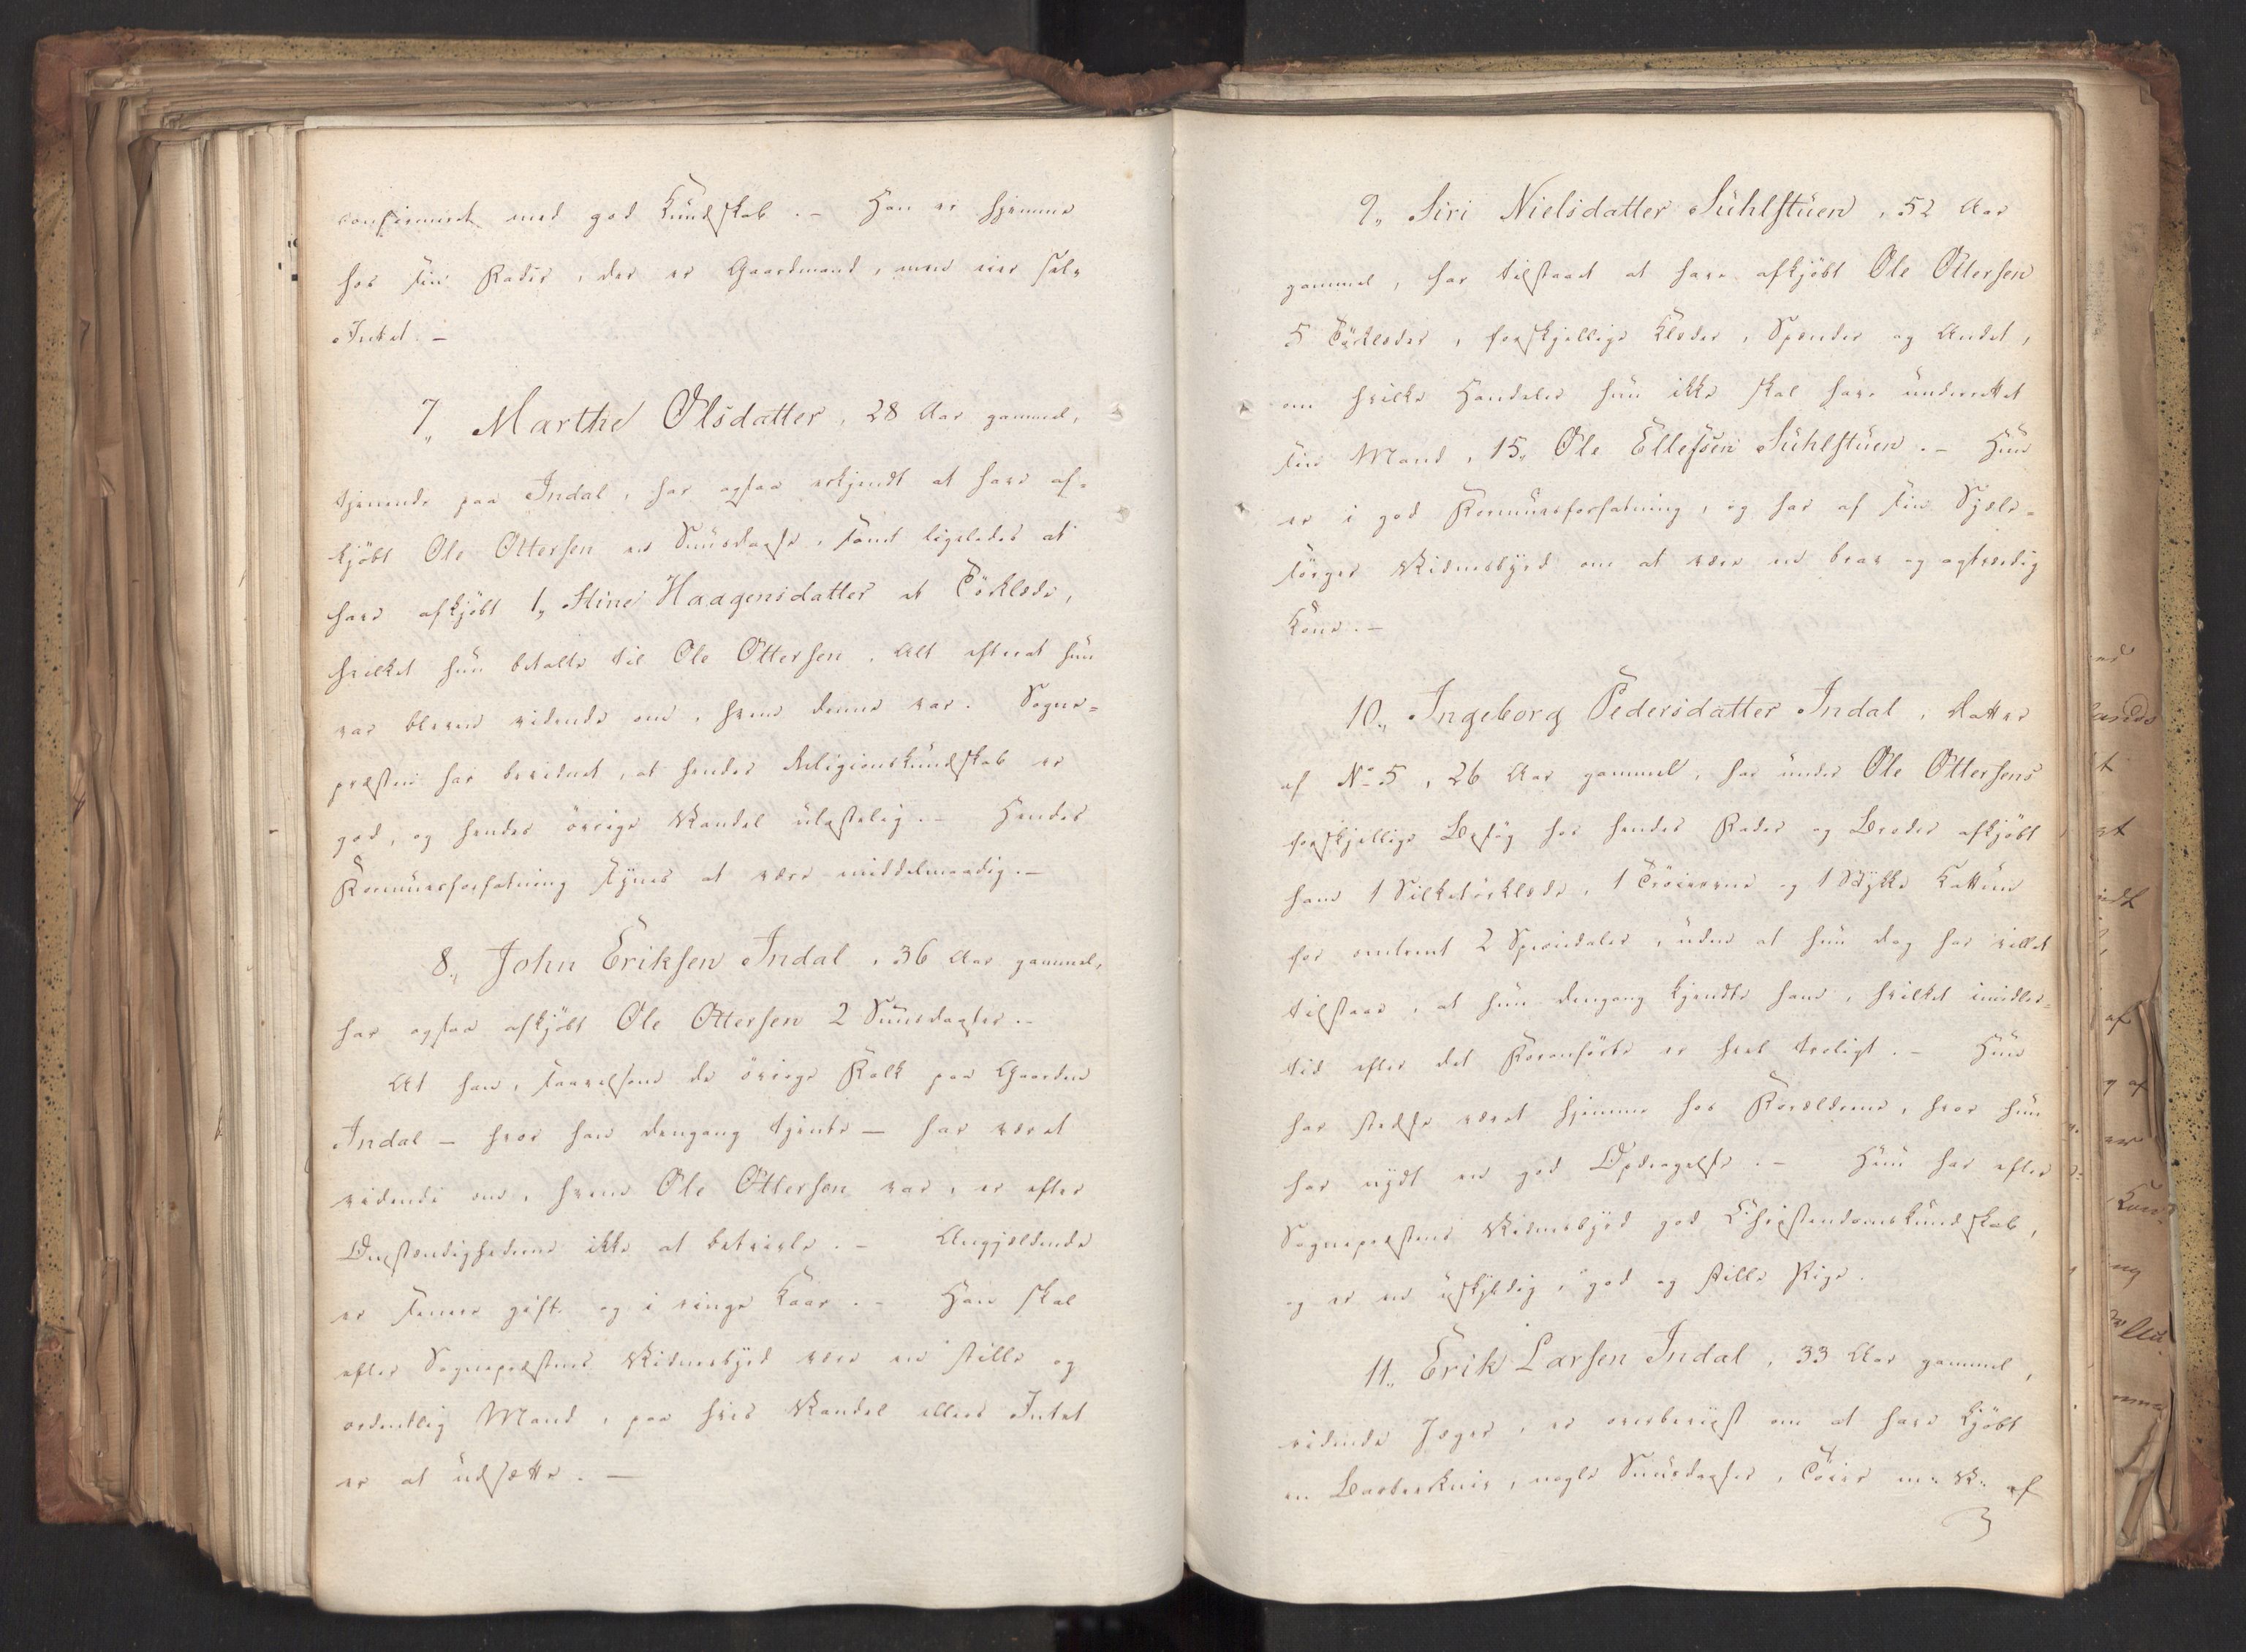 confirmeret med god Kundskab. – Han er hjemme
hos sin Fader, der er Gaardmand, men eier selv
Intet. –
7., Marthe Olsdatter, 28 Aar gammel,
tjenende paa Indal, har ogsaa erkjendt at have af-
kjøbt Ole Ottersen en Snuusdaase, samt ligeledes at
have afkjøbt 1., Stine Haagensdatter et Tørklæde,
hvilket hun betalte til Ole Ottersen, Alt efterat hun
var bleven vidende om, hvem denne var. Sogne-
præsten har bevidnet, at hendes Religionskundskab er
god, og hendes øvrige Vandel ulastelig. – Hendes
Formuesforfatning synes at være middelmaadig. –
8., John Eriksen Indal, 36 Aar gammel,
har ogsaa afkjøbt Ole Ottersen 2 Snuusdaaser. –
At han, saavelsom de øvrige Folk paa Gaarden
Indal – hvor han dengang tjente – har været
vidende om, hvem Ole Ottersen var, er efter
Omstændighederne ikke at betvivle. – Angjældende
er senere gift og i ringe Kaar. – Han skal
efter Sognepræstens Vidnesbyrd være en stille og
ordentlig Mand, paa hvis Vandel ellers Intet
er at udsætte. –
9., Siri Nielsdatter Suhlstuen, 52 Aar
gammel, har tilstaaet at have afkjøbt Ole Ottersen
5 Tørklæder, forskjellige Klæder, Spænder og Andet,
om hvilke Handeler hun ikke skal have underrettet
sin Mand, 15., Ole Ellefsen Suhlstuen. – Hun
er i god Formuesforfatning, og har af sin Sjæle-
sørger Vidnesbyrd om at være en brav og agtværdig
Kone. –
10., Ingeborg Pedersdatter Indal, Datter
af No 5, 26 Aar gammel, har under Ole Ottersens
forskjellige Besøg hos hendes Fader og Broder afkjøbt
ham 1 Silketørklæde, 1 Trøie og 1 Stykke Kattun
for omtrent 2 Speciedaler, uden at hun dog har villet
tilstaae, at hun dengang kjendte ham, hvilket imidler-
tid efter det Foranførte er høist troligt. – Hun
har stedse været hjemme hos Forældrene, hvor hun
har nydt en god Opdragelse. – Hun har efter
Sognepræstens Vidnesbyrd god Christendomskundskab,
og er en uskyldig, god og stille Pige.
11., Erik Larsen Indal, 33 Aar gammel,
ridende Jæger, er overbeviist om at have kjøbt
en Barberkniv, nogle Snuusdaaser, Tøier m: V: af